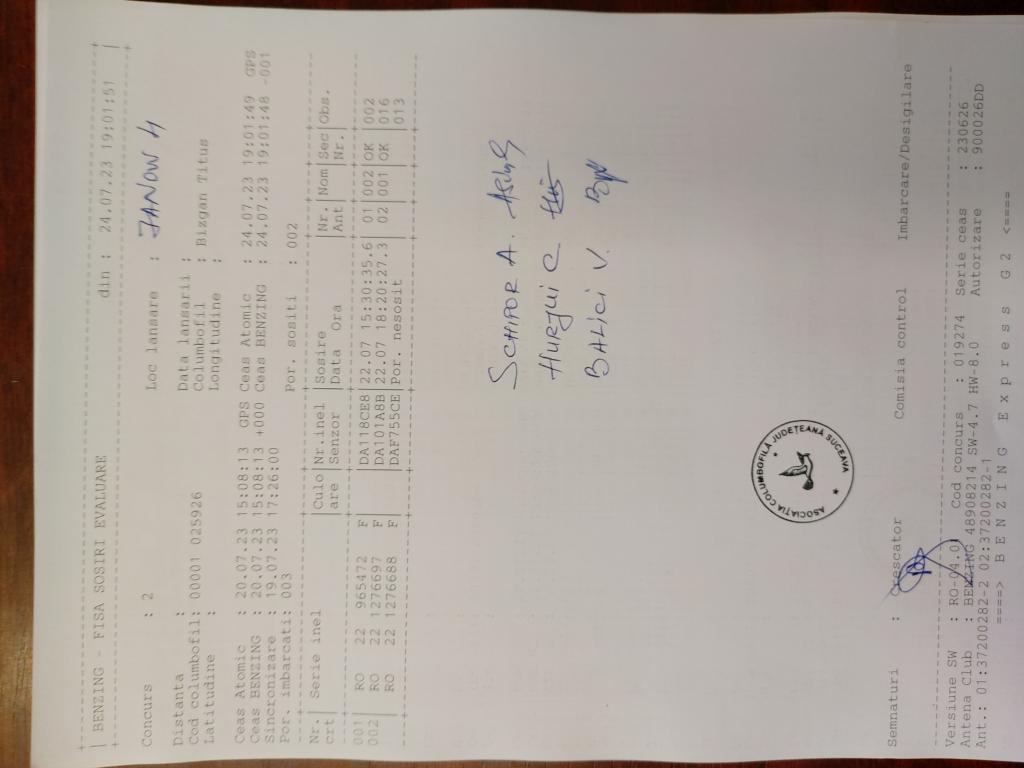 BENZING - FISA SOSIRI EVALUARE din : 24.07.23 19:01:51
Concurs : 2 Loc lansare : JANOW 4
Distanta : Data lansarii :
Cod columbofil: 00001 025926 Columbofil : Bizgan Titus
Latitudine : Longitudine :
Ceas Atomic : 20.07.23 15:08:13 GPS Ceas Atomic : 24.07.23 19:01:49 GPS
Ceas BENZING : 20.07.23 15:08:13 +000 Ceas BENZING : 24.07.23 19:01:48 -001
Sincronizare : 19.07.23 17:26:00
Por. imbarcati: 003 Por. sositi : 002
Nr. | Serie inel |Culo|Nr.inel |Sosire |Nr. |Nom|Sec|Obs.
crt| |are |Senzor |Data Ora |Ant | |Nr.|
001| RO 22 965472 F | |DA118CE8|22.07 15:30:35.6| 01|002|OK |002
002| RO 22 1276697 F | |DA101A8B|22.07 18:20:27.3| 02|001|OK |016
| RO 22 1276688 F | |DAF755CE|Por. nesosit | | | |013
SCHIPOR A.
HURJUI C
BALICI V.
ASOCIAȚIA COLUMBOFILĂ JUDEȚEANĂ SUCEAVA
Semnaturi : Crescator Comisia control Imbarcare/Desigilare
Versiune SW : RO-04.01 Cod concurs : 019274 Serie ceas : 230626
Antena Club : BENZING 48908214 SW-4.7 HW-8.0 Autorizare : 900026DD
Ant.: 01:37200282-2 02:37200282-1
====> B E N Z I N G E x p r e s s G 2 <====